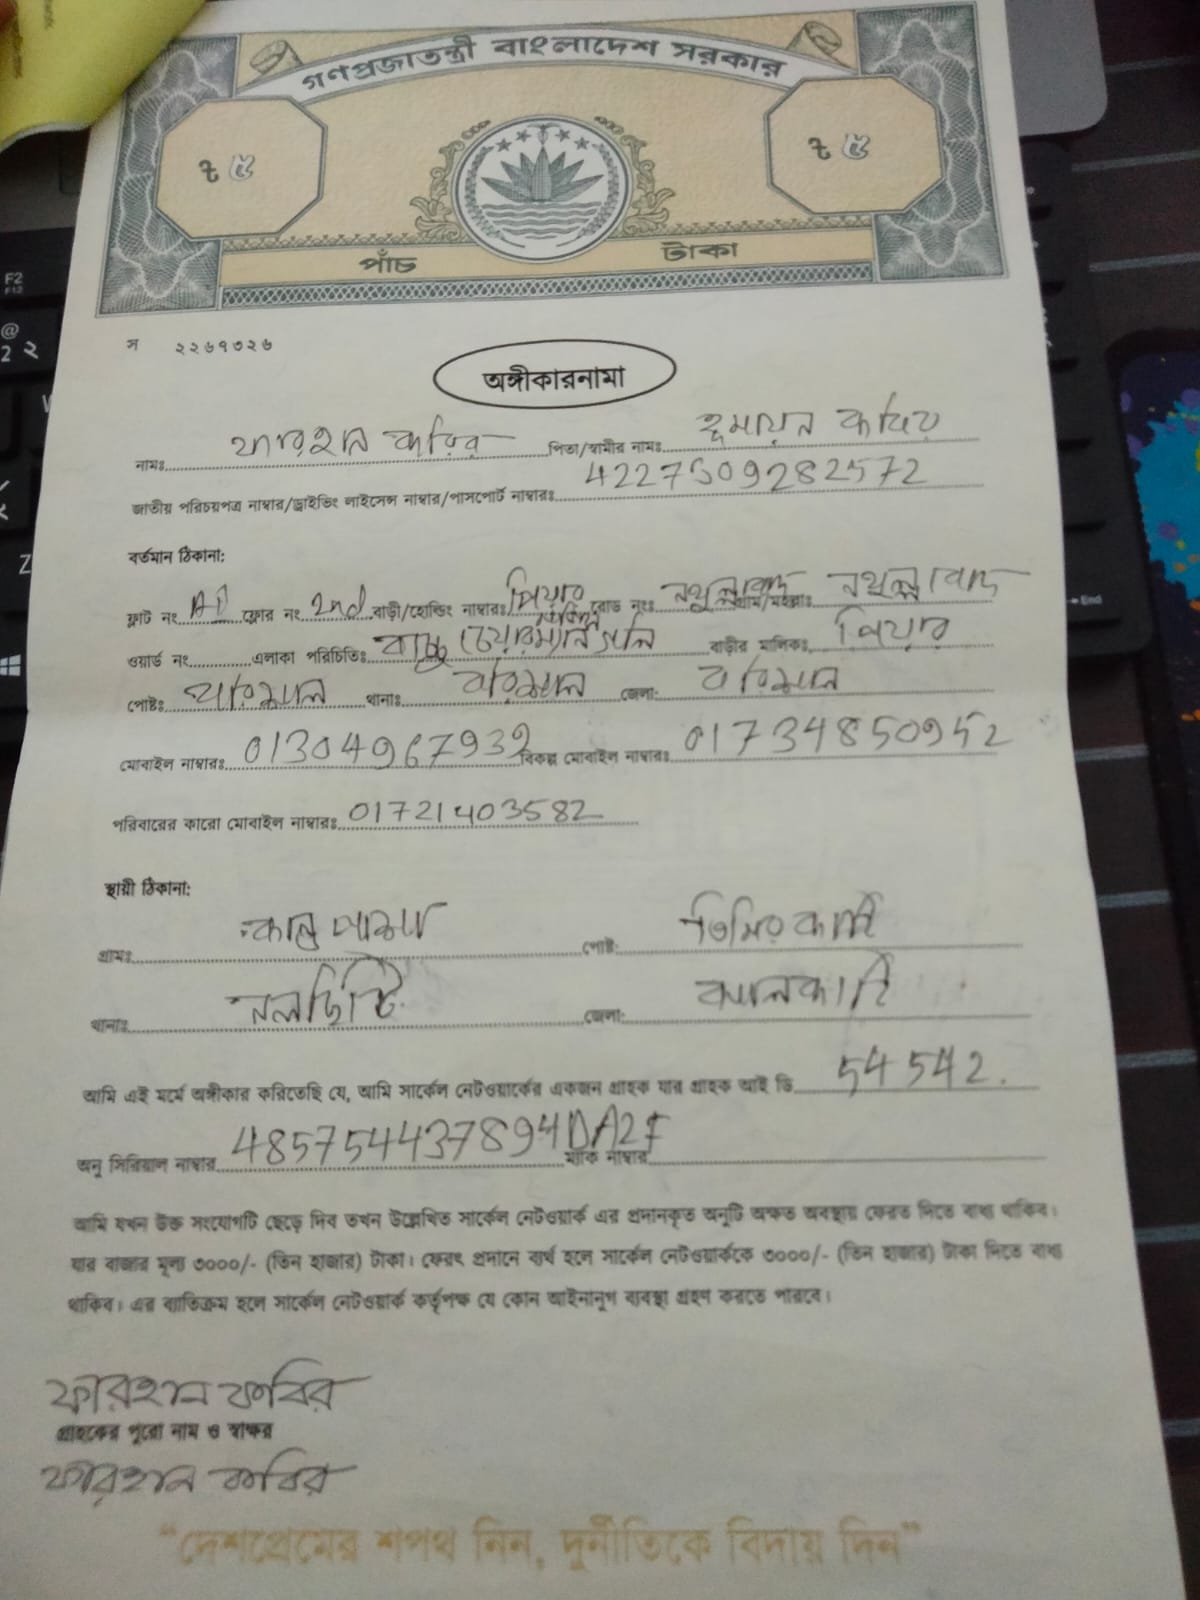 গণপ্রজাতন্ত্রী বাংলাদেশ সরকার
৳ ৫ ৳ ৫
পাঁচ টাকা
স ২২৬৭৩২৬
অঙ্গীকারনামা
নামঃ ফারহান কবির পিতা/স্বামীর নামঃ হুমায়ন কবির
জাতীয় পরিচয়পত্র নাম্বার/ড্রাইভিং লাইসেন্স নাম্বার/পাসপোর্ট নাম্বারঃ 4227309282572
বর্তমান ঠিকানা:
ফ্লাট নং A1 ফ্লোর নং 2nd বাড়ী/হোল্ডিং নাম্বারঃ পিয়ার রোড নংঃ নথুল্লাবাদ গ্রাম/মহল্লাঃ নথুল্লাবাদ
ওয়ার্ড নং এলাকা পরিচিতিঃ বাচ্চু চেয়ারম্যান গলি বাড়ীর মালিকঃ পিয়ার
পোষ্টঃ বরিশাল থানাঃ বরিশাল জেলা: বরিশাল
মোবাইল নাম্বারঃ 01304967939 বিকল্প মোবাইল নাম্বারঃ 01734850952
পরিবারের কারো মোবাইল নাম্বারঃ 01721403582
স্থায়ী ঠিকানা:
গ্রামঃ পোষ্ট: তিমির কাঠি
থানাঃ নলছিটি জেলা: ঝালকাঠি
আমি এই মর্মে অঙ্গীকার করিতেছি যে, আমি সার্কেল নেটওয়ার্কের একজন গ্রাহক যার গ্রাহক আই ডি 54542.
অনু সিরিয়াল নাম্বার 485754437894DA2F ম্যাক নাম্বার
আমি যখন উক্ত সংযোগটি ছেড়ে দিব তখন উল্লেখিত সার্কেল নেটওয়ার্ক এর প্রদানকৃত অনুটি অক্ষত অবস্থায় ফেরত দিতে বাধ্য থাকিব।
যার বাজার মূল্য ৩০০০/- (তিন হাজার) টাকা। ফেরৎ প্রদানে ব্যর্থ হলে সার্কেল নেটওয়ার্ককে ৩০০০/- (তিন হাজার) টাকা দিতে বাধ্য
থাকিব। এর ব্যতিক্রম হলে সার্কেল নেটওয়ার্ক কর্তৃপক্ষ যে কোন আইনানুগ ব্যবস্থা গ্রহণ করতে পারবে।
ফারহান কবির
গ্রাহকের পুরো নাম ও স্বাক্ষর
ফারহান কবির
“দেশপ্রেমের শপথ নিন, দুর্নীতিকে বিদায় দিন”